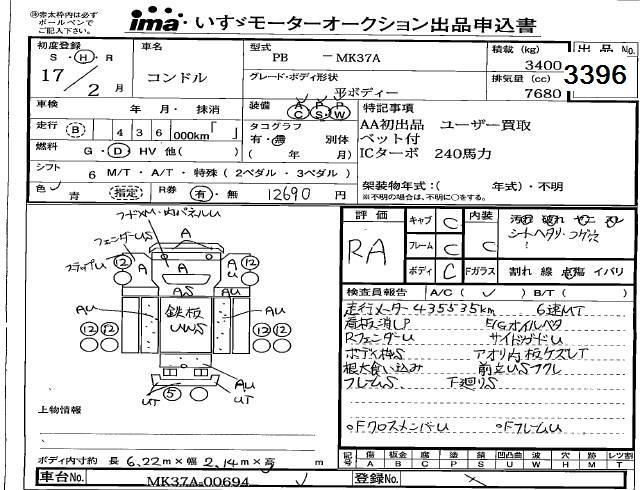 ※赤太枠内は必ず
ボールペンで
ご記入下さい。
ima いすゞモーターオークション出品申込書
初度登録 S・H・R
17/2月
車名 コンドル
型式 PB - MK37A
グレード・ボディ形状 平ボディー
積載 (kg) 3400
排気量 (cc) 7680
出品No. 3396
車検 年 月・抹消
走行 B 436000km「 」
燃料 G・D・HV 他( )
シフト 6 M/T・A/T・特殊(2ペダル・3ペダル)
色 青 (指定) R券 有・無 12690円
装備 AC PS PW
タコグラフ 有・無 別体
( 年 月)
特記事項
AA初出品 ユーザー買取
ベット付
ICターボ 240馬力
架装物年式:( 年式)・不明
※不明の場合は、不明に○をする。
フドXM・内パネルU
フェンダーUS
ステップU
A
A
A
A
A
U
12
12
12 12
12 12
AS
AU
AU
鉄板
UWS
AU
UT
UT
5
上物情報
ボディ内寸約 長 6.22m×幅 2.14m×高 m
評価 RA
キャブ C
フレーム C
ボディ C
内装 C
Fガラス
シートヘタリ・コゲ穴
割れ 線 点傷 イバリ
検査員報告 A/C( ✓ ) B/T( )
走行メーター435535km 6速MT
看板消しP E/Gオイルベタ
RフェンダーU サイドガードU
ボディ枠S アオリ内板ケズレT
根太食い込み 前立USフクレ
フレームS 下廻りS
○FクロスメンバーU ○FフレームU
記号 傷A 板金B 腐C 塗P 錆S 凹凸曲U 波W 穴H 跡M レツ割T
車台No. MK37A-00694
登録No. ×